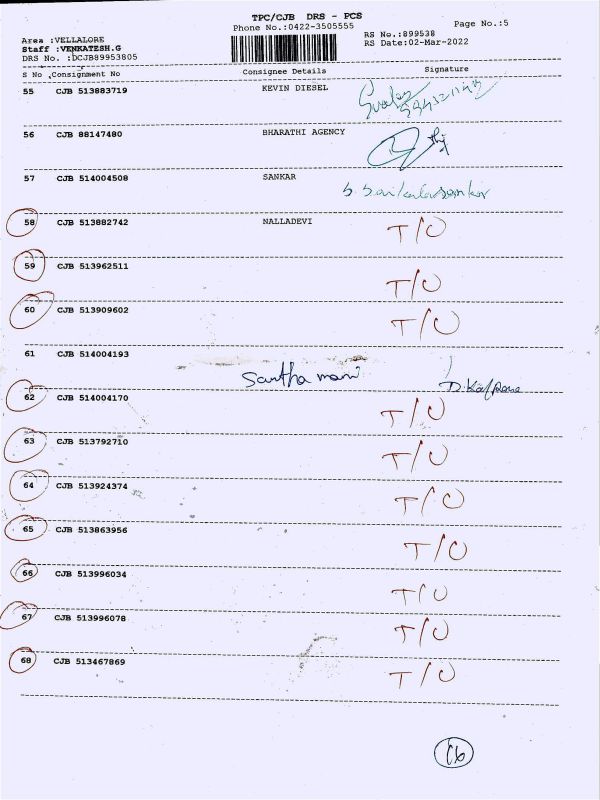 TPC/CJB DRS - PCS
Phone No.:0422-3505555
Page No.:5
Area :VELLALORE
Staff :VENKATESH.G
DRS No. :DCJB89953805
RS No.:899538
RS Date:02-Mar-2022
S No Consignment No Consignee Details Signature
55 CJB 513883719 KEVIN DIESEL
56 CJB 88147480 BHARATHI AGENCY
57 CJB 514004508 SANKAR
58 CJB 513882742 NALLADEVI T/O
59 CJB 513962511 T/O
60 CJB 513909602 T/O
61 CJB 514004193
Santha mani D.Kalpana
62 CJB 514004170 T/O
63 CJB 513792710 T/O
64 CJB 513924374 T/O
65 CJB 513863956 T/O
66 CJB 513996034 T/O
67 CJB 513996078 T/O
68 CJB 513467869 T/O